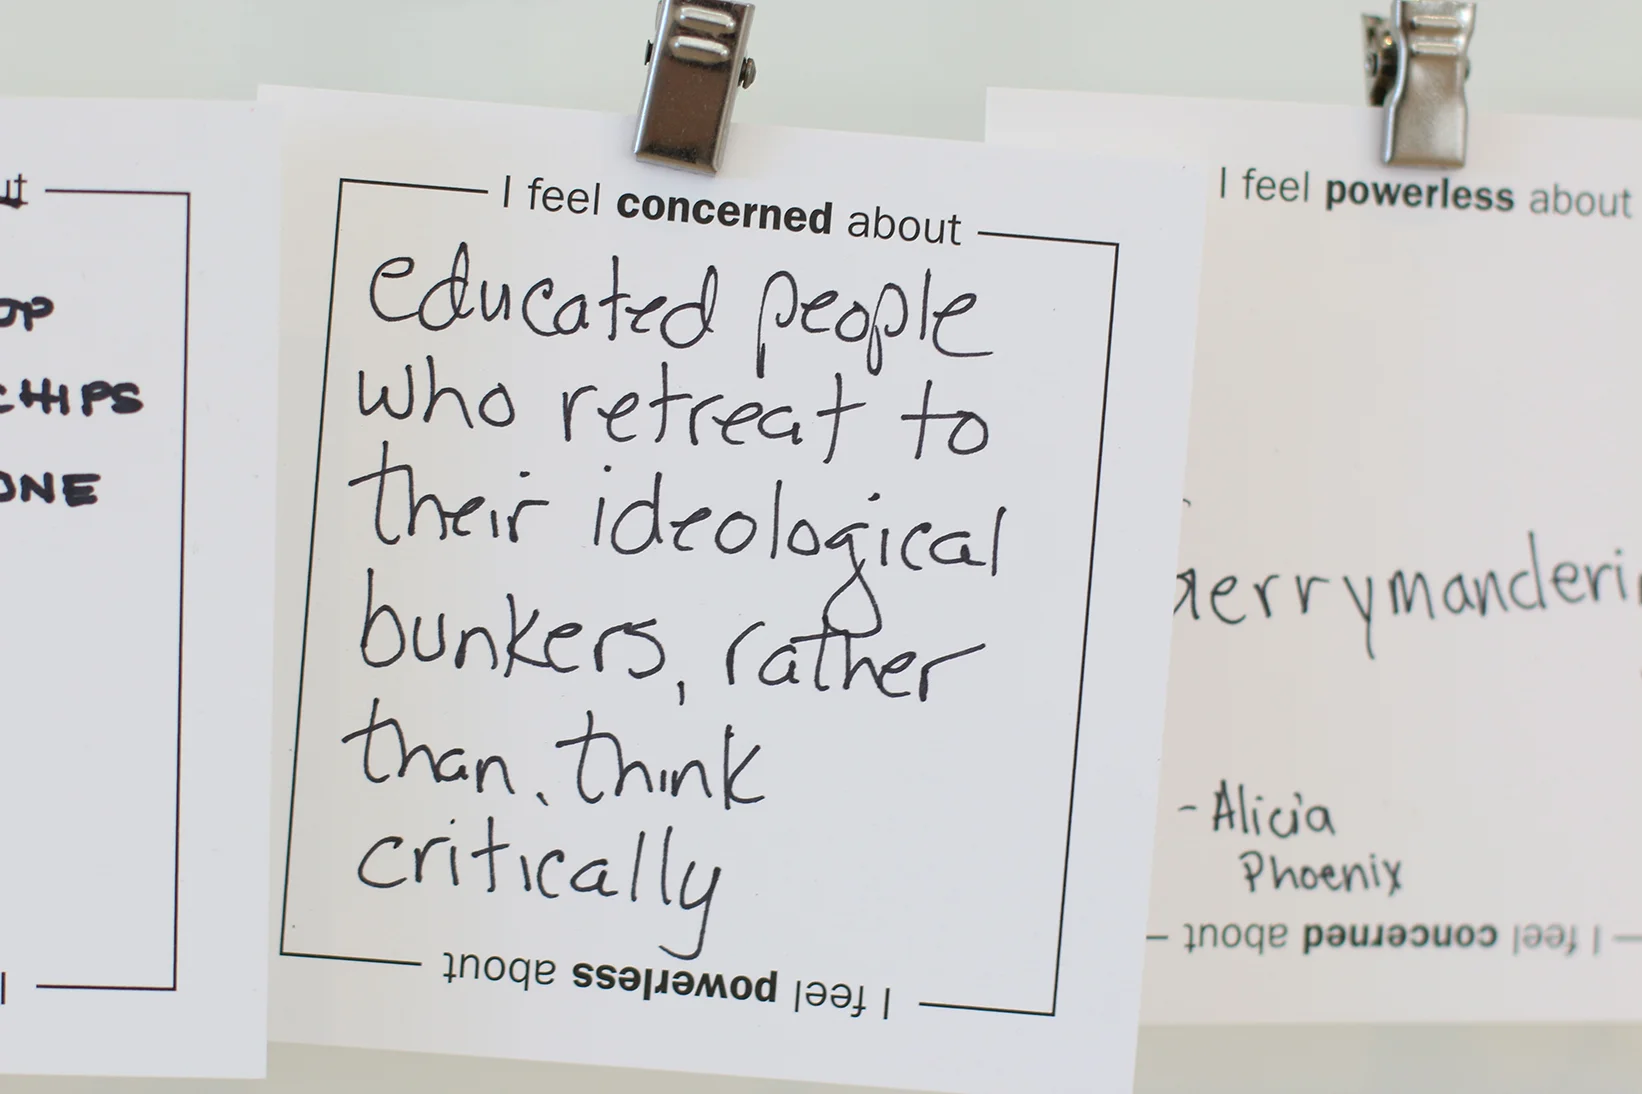 I feel concerned about
educated people
who retreat to
their ideological
bunkers, rather
than, think
critically
I feel powerless about
CHIPS
I feel powerless about
- Alicia
Phoenix
I feel concerned about